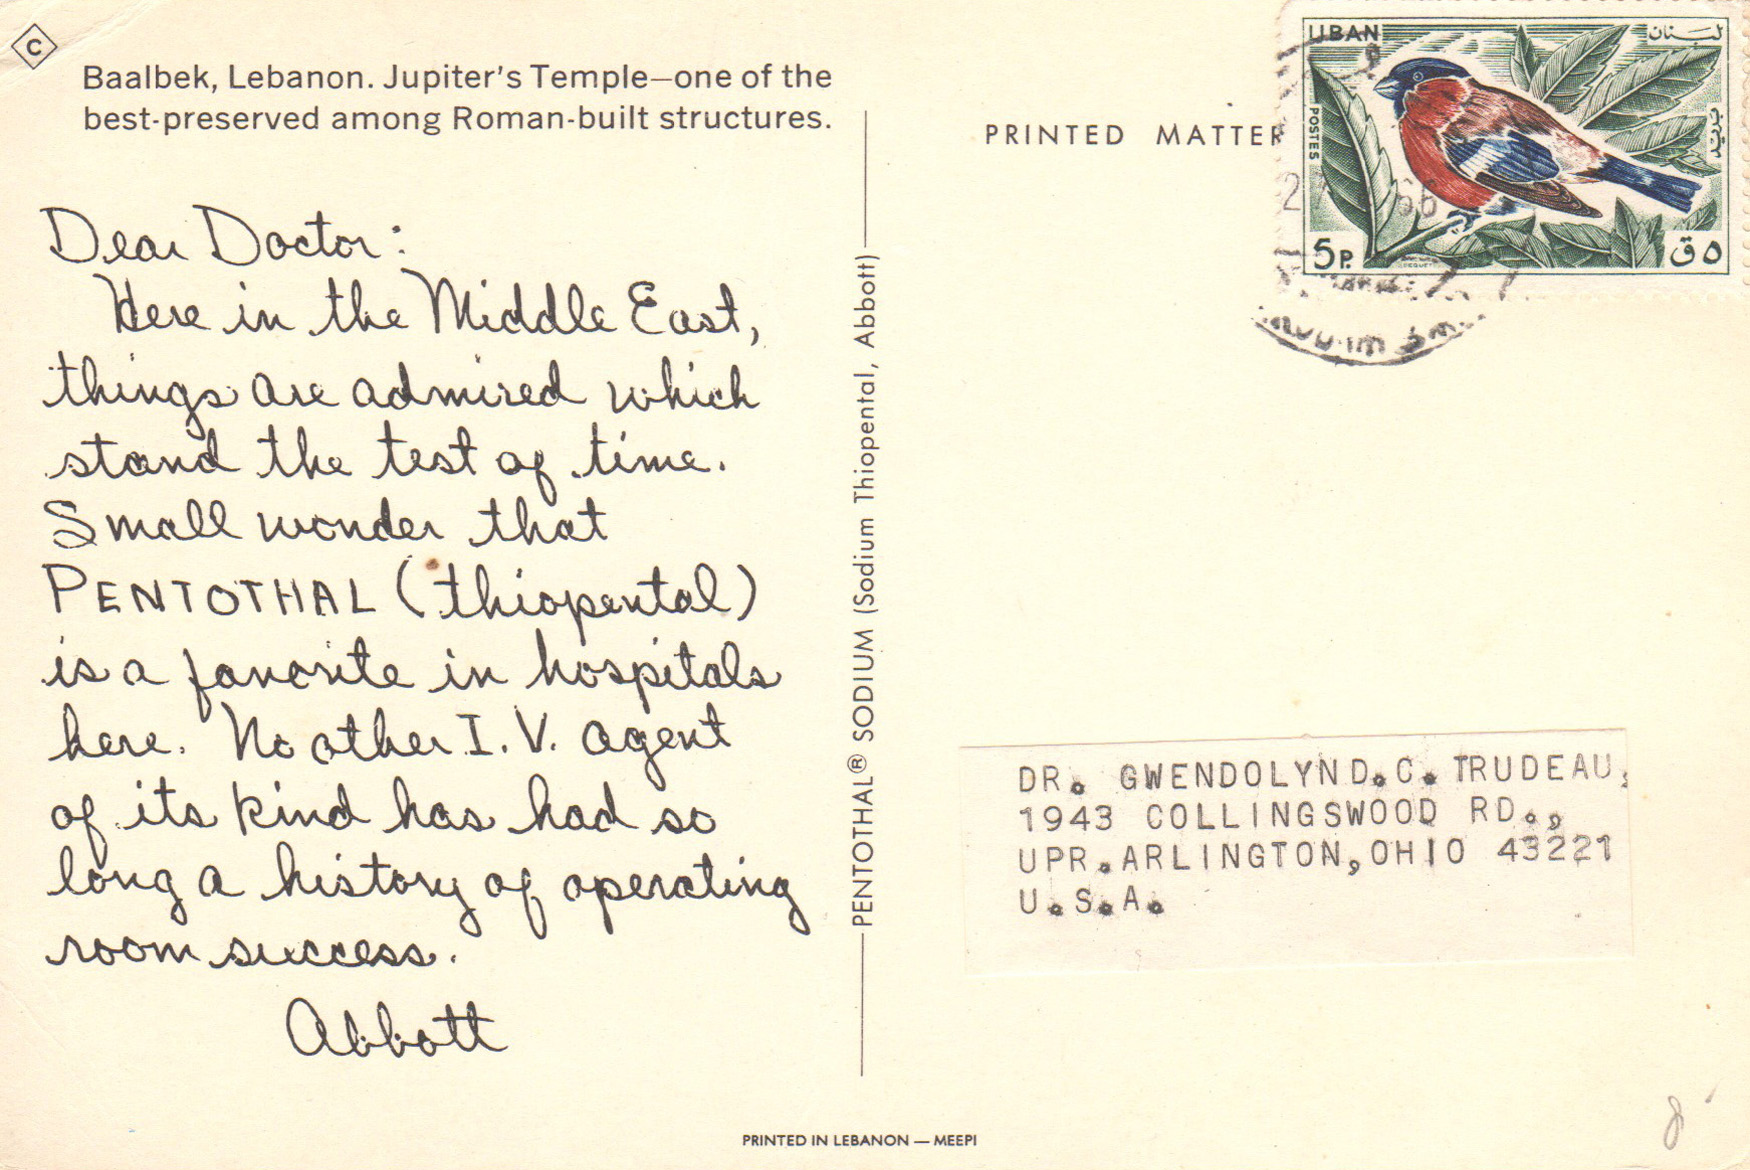 C
Baalbek, Lebanon. Jupiter's Temple—one of the
best-preserved among Roman-built structures.
Dear Doctor:
Here in the Middle East,
things are admired which
stand the test of time.
Small wonder that
PENTOTHAL (thiopental)
is a favorite in hospitals
here. No other I.V. agent
of its kind has had so
long a history of operating
room success.
Abbott
PENTOTHAL® SODIUM (Sodium Thiopental, Abbott)
PRINTED IN LEBANON — MEEPI
PRINTED MATTER
LIBAN لبنان
POSTES
بريد
66
5P. ٥ ق
DR. GWENDOLYN D.C. TRUDEAU,
1943 COLLINGSWOOD RD.,
UPR.ARLINGTON,OHIO 43221
U.S.A.